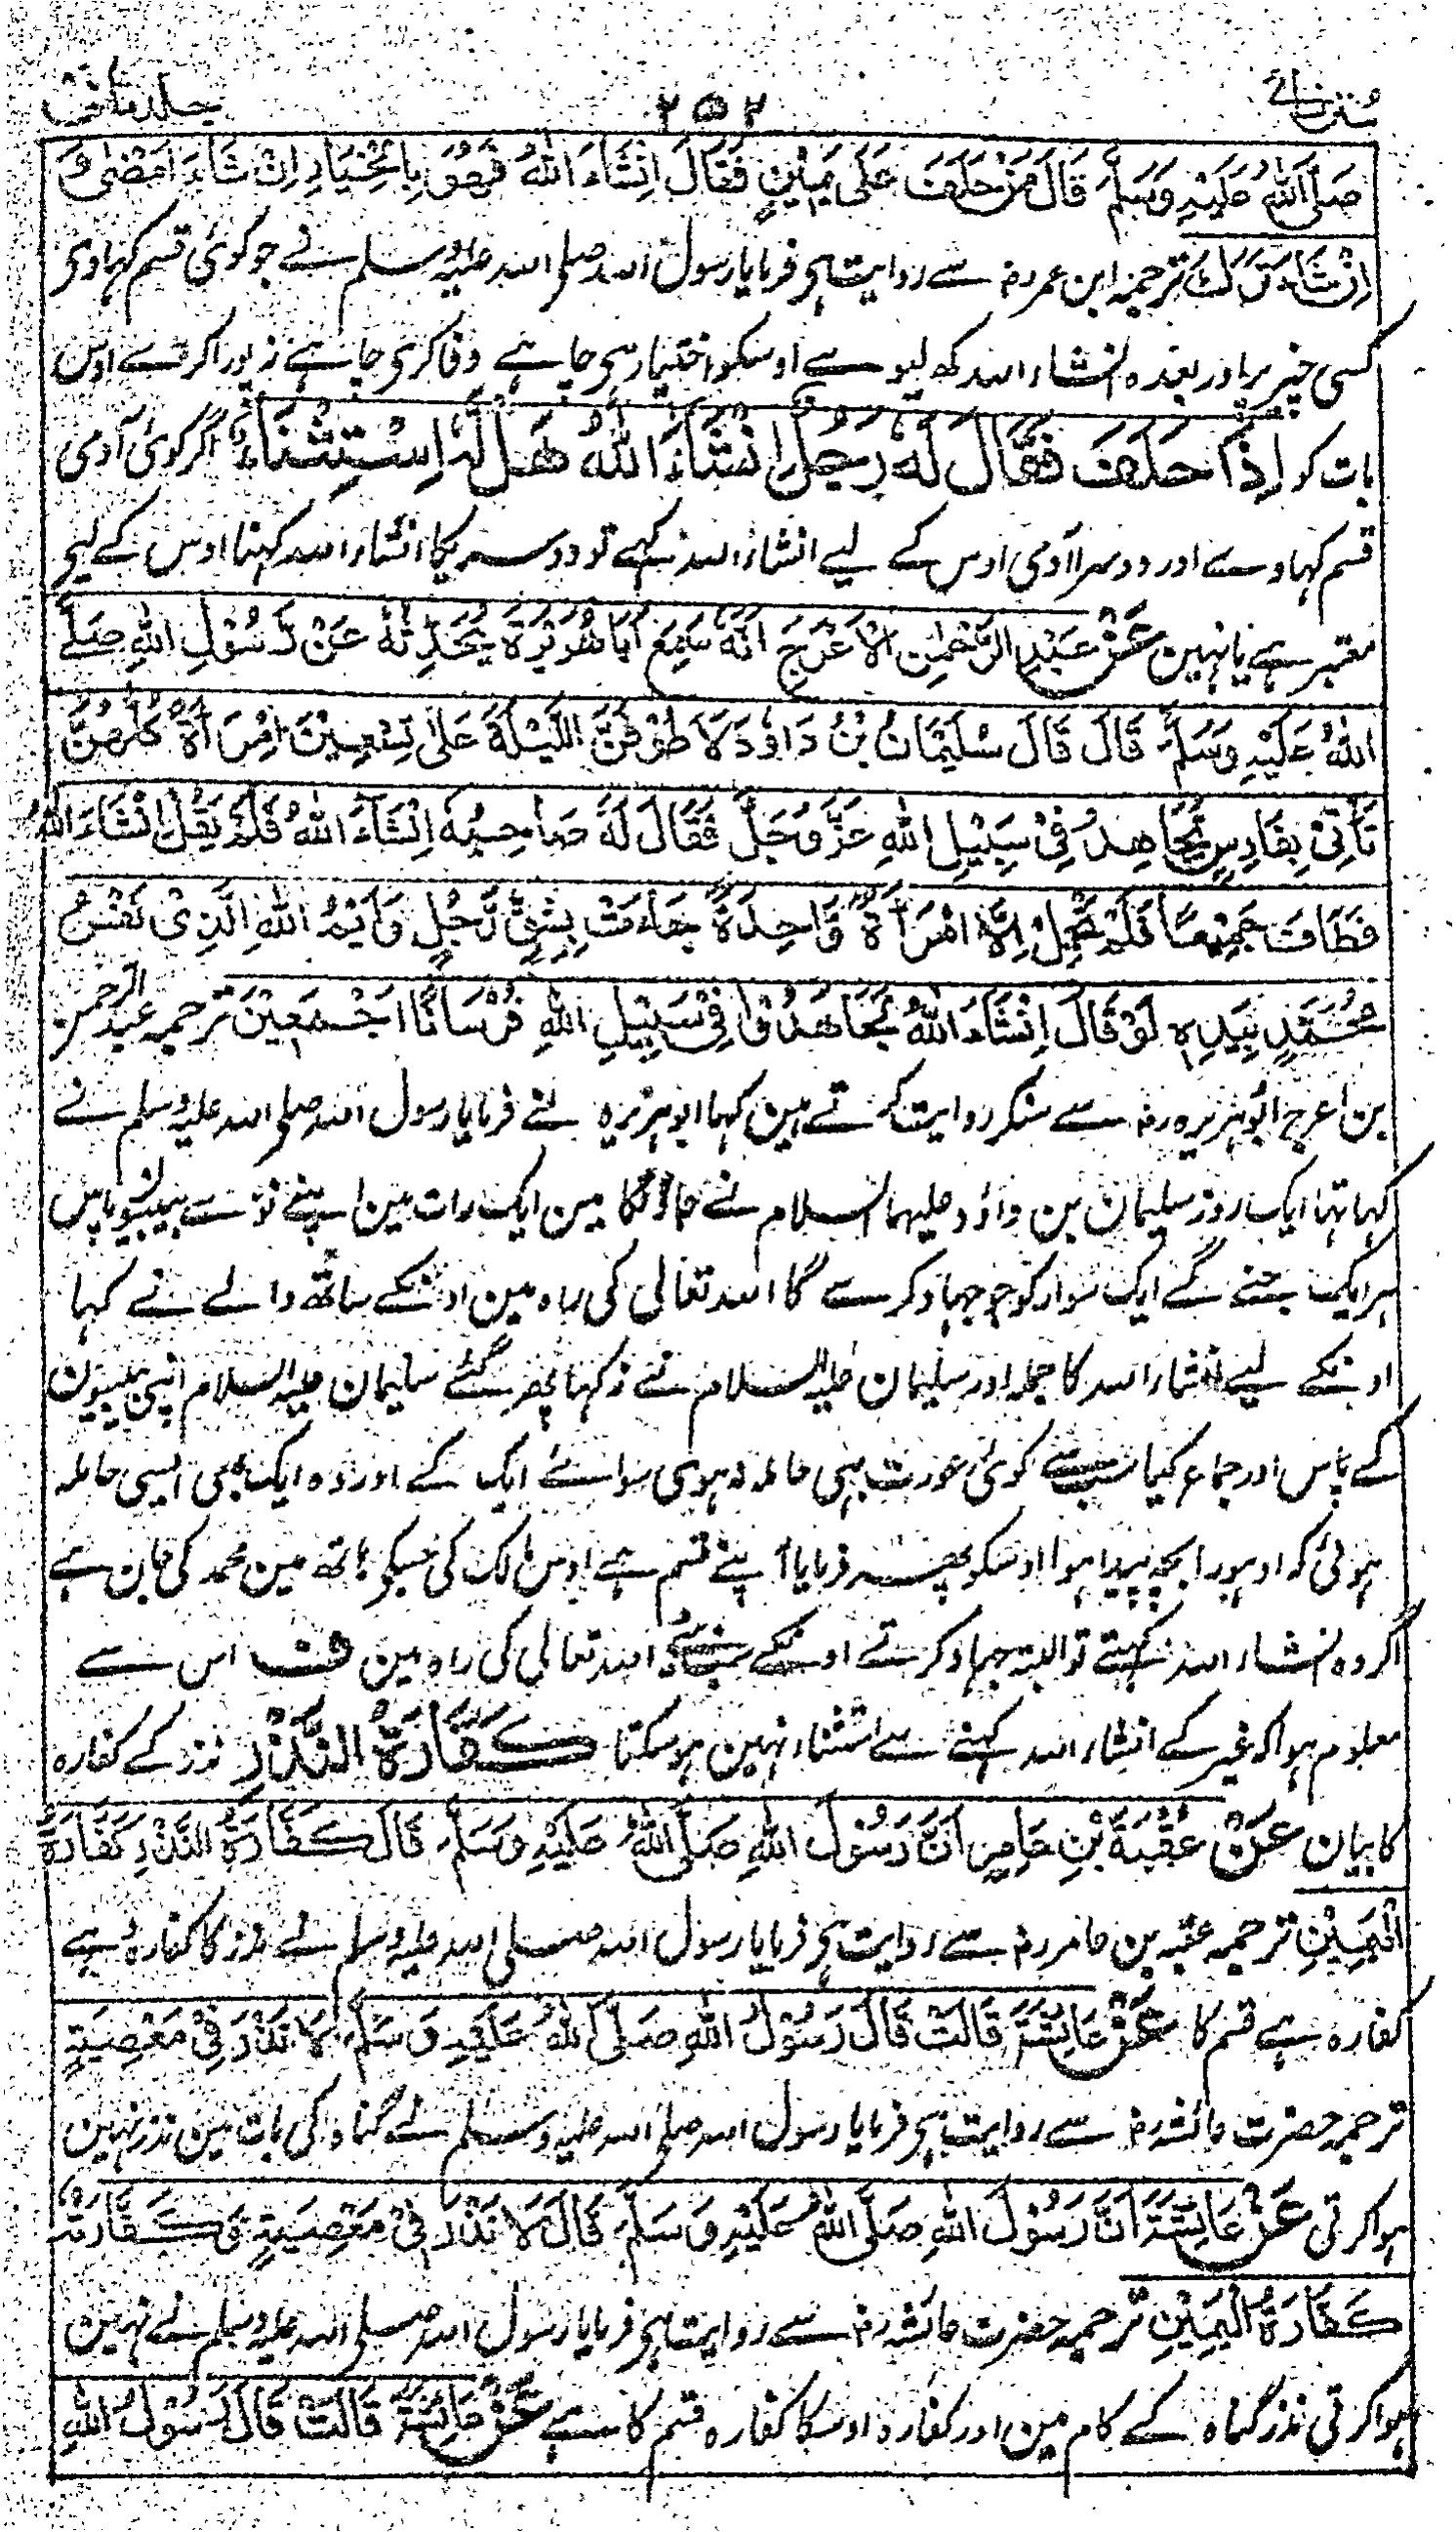 سنن نسائے ۲۵۲ جلد ثانی
صَلَّى اللهُ عَلَيْهِ وَسَلَّمَ قَالَ مَنْ حَلَفَ عَلَى يَمِيْنٍ فَقَالَ اِنْشَاءَ اللهُ فَهُوَ بِالْخِيَارِ اِنْ شَاءَ اَمْضٰى وَ
اِنْ شَاءَ تَرَكَ ترجمہ ابن عمر رضہ سے روایت ہی فرمایا رسول اللہ صلی اللہ علیہ وسلم نے جو کوئی قسم کہاوی
کسی چیز پر اور بعدہ انشاء اللہ کہ لیوے اوسکو اختیار ہی چاہے وفا کری چاہے نہ پورا کرے اوس
بات کو اِذَا حَلَفَ فَقَالَ لَهٗ رَجُلٌ اِنْشَاءَ اللهُ هَلْ لَهٗ اِسْتِثْنَاءٌ اگر کوئی آدمی
قسم کہاوے اور دوسرا آدمی اوس کے لیے انشاء اللہ کہے تو دوسریکا انشاء اللہ کہنا اوس کے لیے
معتبر ہے یا نہین عَنْ عَبْدِ الرَّحْمٰنِ الْاَعْرَجِ اَنَّهٗ سَمِعَ اَبَا هُرَيْرَةَ يُحَدِّثُهٗ عَنْ رَسُوْلِ اللهِ صَلَّى
اللهُ عَلَيْهِ وَسَلَّمَ قَالَ قَالَ سُلَيْمَانُ بْنُ دَاوٗدَ لَاَطُوْفَنَّ اللَّيْلَةَ عَلٰى تِسْعِيْنَ امْرَاَةً كُلُّهُنَّ
تَأْتِيْ بِفَارِسٍ يُجَاهِدُ فِيْ سَبِيْلِ اللهِ عَزَّ وَجَلَّ فَقَالَ لَهٗ صَاحِبُهٗ اِنْشَاءَ اللهُ فَلَمْ يَقُلْ اِنْشَاءَ اللهُ
فَطَافَ جَمِيْعًا فَلَمْ تَحْمِلْ اِلَّا امْرَاَةٌ وَّاحِدَةٌ جَاءَتْ بِشِقِّ رَجُلٍ وَاَيْمُ اللهِ الَّذِيْ نَفْسُ
مُحَمَّدٍ بِيَدِهٖ لَوْ قَالَ اِنْشَاءَ اللهُ لَجَاهَدُوْا فِيْ سَبِيْلِ اللهِ فُرْسَانًا اَجْمَعِيْنَ ترجمہ عبد الرحمن
بن اعرج ابوہریرہ رضہ سے سنکر روایت کرتے ہین کہا ابوہریرہ نے فرمایا رسول اللہ صلی اللہ علیہ وسلم نے
کہا تہا ایک روز سلیمان بن داؤد علیہما السلام نے جاؤنگا مین ایک رات مین اپنے نوے بیبیون پاس
ہر ایک جنے گے ایک سوار کو جو جہاد کرے گا اللہ تعالی کی راہ مین اونکے ساتھ والے نے کہا
اونکے لیے انشاء اللہ کا جملہ اور سلیمان علیہ السلام نے نہ کہا پھر گئے سلیمان علیہ السلام اپنی بیبیون
کے پاس اور جماع کیا سب سے کوئی عورت بہی حاملہ نہ ہوئی سوائے ایک کے اور وہ ایک بھی ایسی حاملہ
ہوئی کہ اوہورا بچہ پیدا ہوا اوسکو پھر فرمایا آپنے قسم ہے اوس مالک کی جسکی ہاتھ مین محمد کی جان ہے
اگر وہ انشاء اللہ کہتے تو البتہ جہاد کرتے اونکے اللہ تعالی کی راہ مین ف اس سے
معلوم ہوا کہ غیر کے انشاء اللہ کہنے سے استثناء نہین ہو سکتا كَفَّارَةُ النَّذْرِ نذر کے کفارہ
کا بیان عَنْ عُقْبَةَ بْنِ عَامِرٍ اَنَّ رَسُوْلَ اللهِ صَلَّى اللهُ عَلَيْهِ وَسَلَّمَ قَالَ كَفَّارَةُ النَّذْرِ كَفَّارَةُ
الْيَمِيْنِ ترجمہ عقبہ بن عامر رضہ سے روایت ہی فرمایا رسول اللہ صلی اللہ علیہ وسلم نے نذر کا کفارہ ہے
کفارہ ہے قسم کا عَنْ عَائِشَةَ قَالَتْ قَالَ رَسُوْلُ اللهِ صَلَّى اللهُ عَلَيْهِ وَسَلَّمَ لَا نَذْرَ فِيْ مَعْصِيَةٍ
ترجمہ حضرت عائشہ رضہ سے روایت ہی فرمایا رسول اللہ صلی اللہ علیہ وسلم نے گناہ کی بات مین نذر نہین
ہوا کرتی عَنْ عَائِشَةَ اَنَّ رَسُوْلَ اللهِ صَلَّى اللهُ عَلَيْهِ وَسَلَّمَ قَالَ لَا نَذْرَ فِيْ مَعْصِيَةٍ وَكَفَّارَتُهٗ
كَفَّارَةُ الْيَمِيْنِ ترجمہ حضرت عائشہ رضہ سے روایت ہی فرمایا رسول اللہ صلی اللہ علیہ وسلم نے نہین
ہوا کرتی نذر گناہ کے کام مین اور کفارہ اوسکا کفارہ قسم کا ہے عَنْ عَائِشَةَ قَالَتْ قَالَ رَسُوْلُ اللهِ